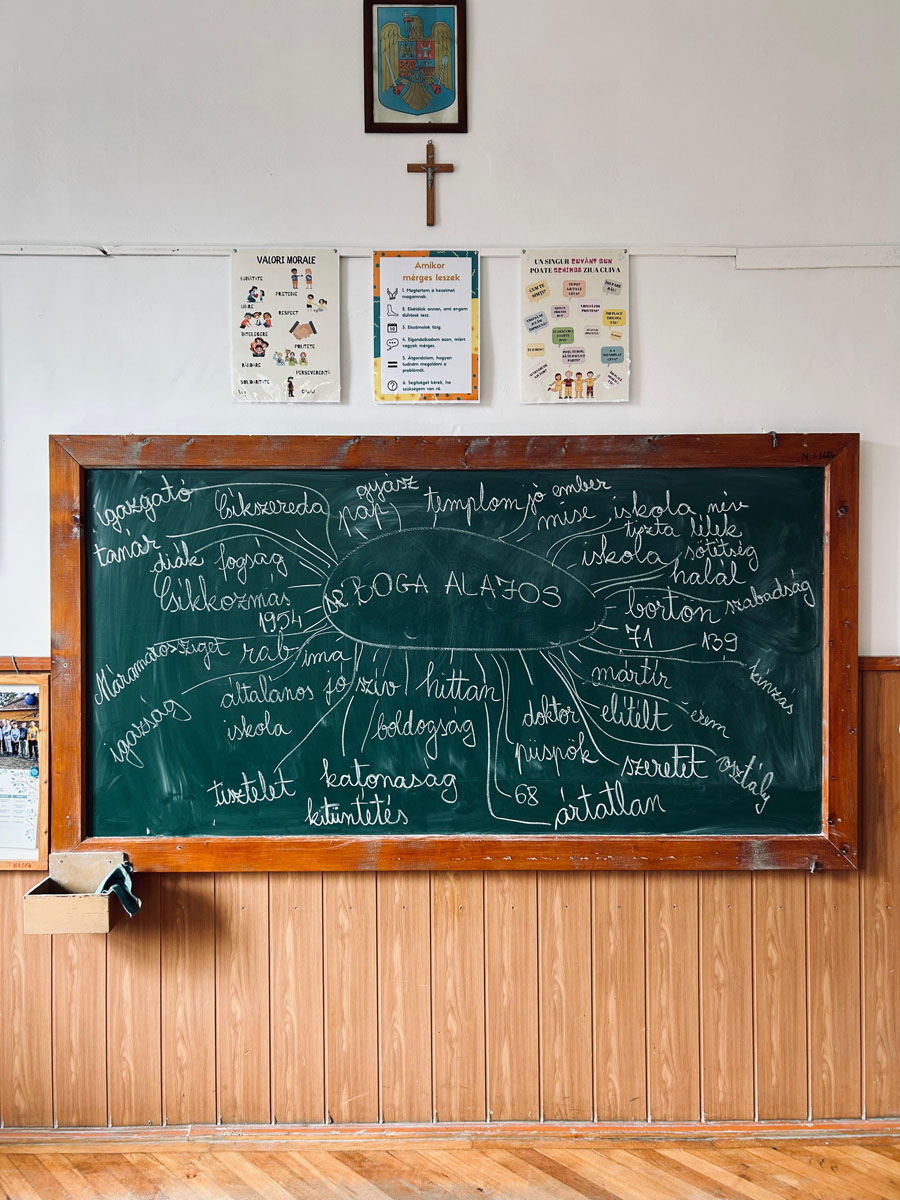 VALORI MORALE
PRIETENIE
RESPECT
POLITEȚE
PERSEVERENȚĂ
SOLIDARITATE
Amikor
mérges leszek
1. Megtartom a kezeimet
magamnak.
2. Elsétálok onnan, ami engem
dühössé tesz.
3. Elszámolok tízig.
4. Elgondolkodom azon, miért
vagyok mérges.
5. Átgondolom, hogyan
tudnám megoldani a
problémát.
6. Segítséget kérek, ha
szükségem van rá.
UN SINGUR CUVÂNT BUN
POATE SCHIMBA ZIUA CUIVA
igazgató
Csíkszereda
gyász
pap
templom
jó ember
mise
iskola név
tiszta lélek
tanár
diák
fogság
iskola
sötétség
halál
Csíkkozmás
DR BOGA ALAJOS
börtön
szabadság
1954
71
139
Máramarossziget
rab
ima
mártír
kínzás
igazság
általános
iskola
jó szív
hittan
boldogság
doktor
püspök
elítélt
érem
szeretet
osztály
tisztelet
katonaság
kitüntetés
68
ártatlan